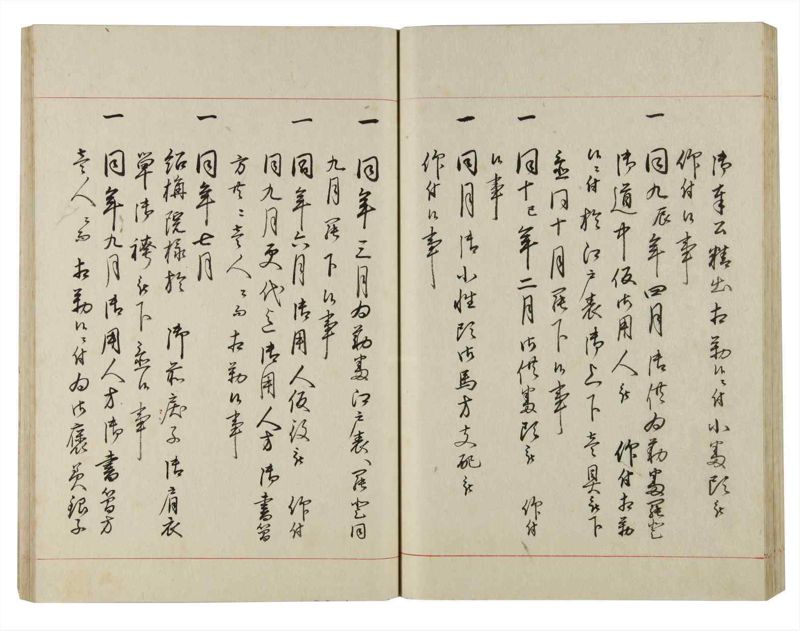 御奉公精出相勤候ニ付小番頭被
仰付候事
一 同九辰年四月御供為勤番罷登
御道中仮御用人被 仰付相勤
候ニ付於江戸表御上下壱具被下
置同十月罷下候事
一 同十巳年二月御供番頭被 仰付
候事
一 同月御小性頭御馬方支配被
仰付候事
一 同年三月為勤番江戸表へ罷登同
九月罷下候事
一 同年六月御用人仮役被 仰付
同九月更代迄御用人方御書簡
方共ニ壱人ニ而相勤候事
一 同年七月
絽梅院様於 御前 御肩衣
単御袴被下置候事
一 同年九月御用人方御書簡方
壱人ニ而相勤候ニ付為御褒美銀子